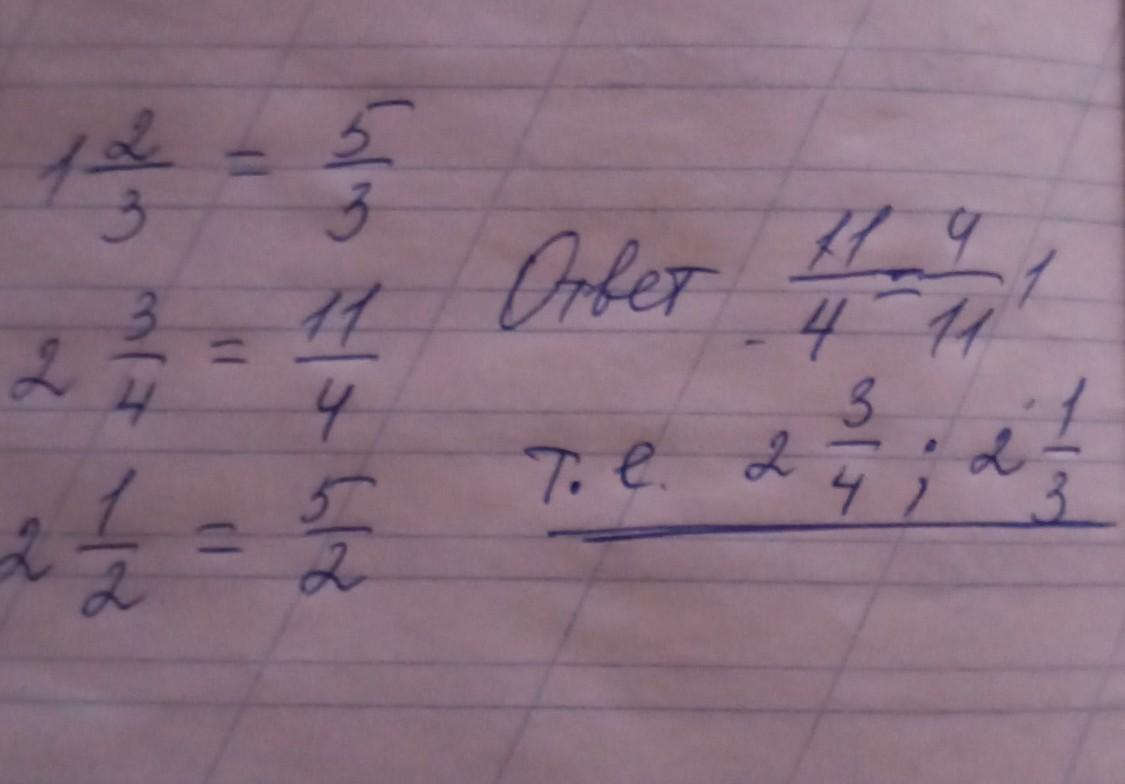 1 2/3 = 5/3
2 3/4 = 11/4
2 1/2 = 5/2
Ответ 11/4 = 4/11 1
т.е. 2 3/4 ; 2 1/3